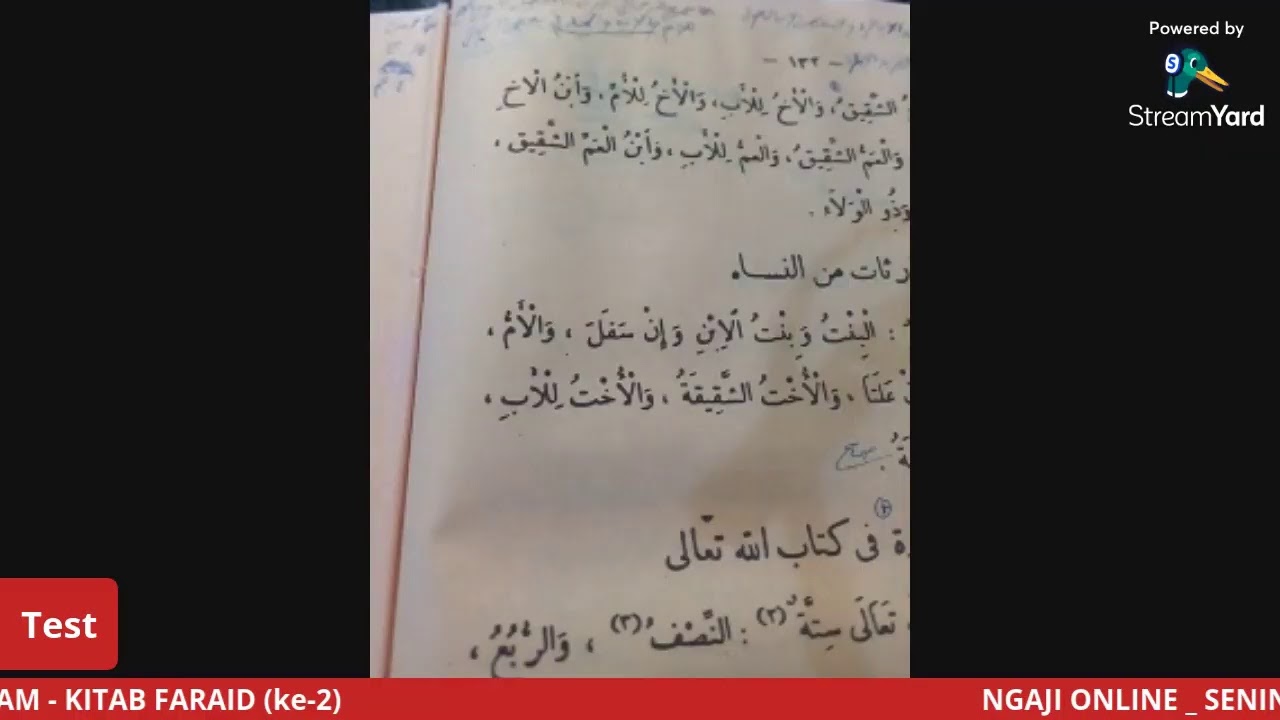 - ١٣٢ -
الشَّقِيقُ، وَالْأَخُ لِلْأَبِ، وَالْأَخُ لِلْأُمِّ، وَابْنُ الْاخِ
وَالْعَمُّ الشَّقِيقُ، وَالْعَمُّ لِلْأَبِ، وَابْنُ الْعَمِّ الشَّقِيقِ،
وَذُو الْوَلَاءِ.
رثات من النساء
: الْبِنْتُ وَبِنْتُ الْاِبْنِ وَإِنْ سَفَلَ، وَالْأُمُّ،
عَلَتَا، وَالْأُخْتُ الشَّقِيقَةُ، وَالْأُخْتُ لِلْأَبِ،
ة فى كتاب الله تعالى
تَعَالَى سِتَّةٌ (٢) : النِّصْفُ (٣)، وَالرُّبُعُ،
Powered by
StreamYard
Test
AM - KITAB FARAID (ke-2)
NGAJI ONLINE _ SENIN